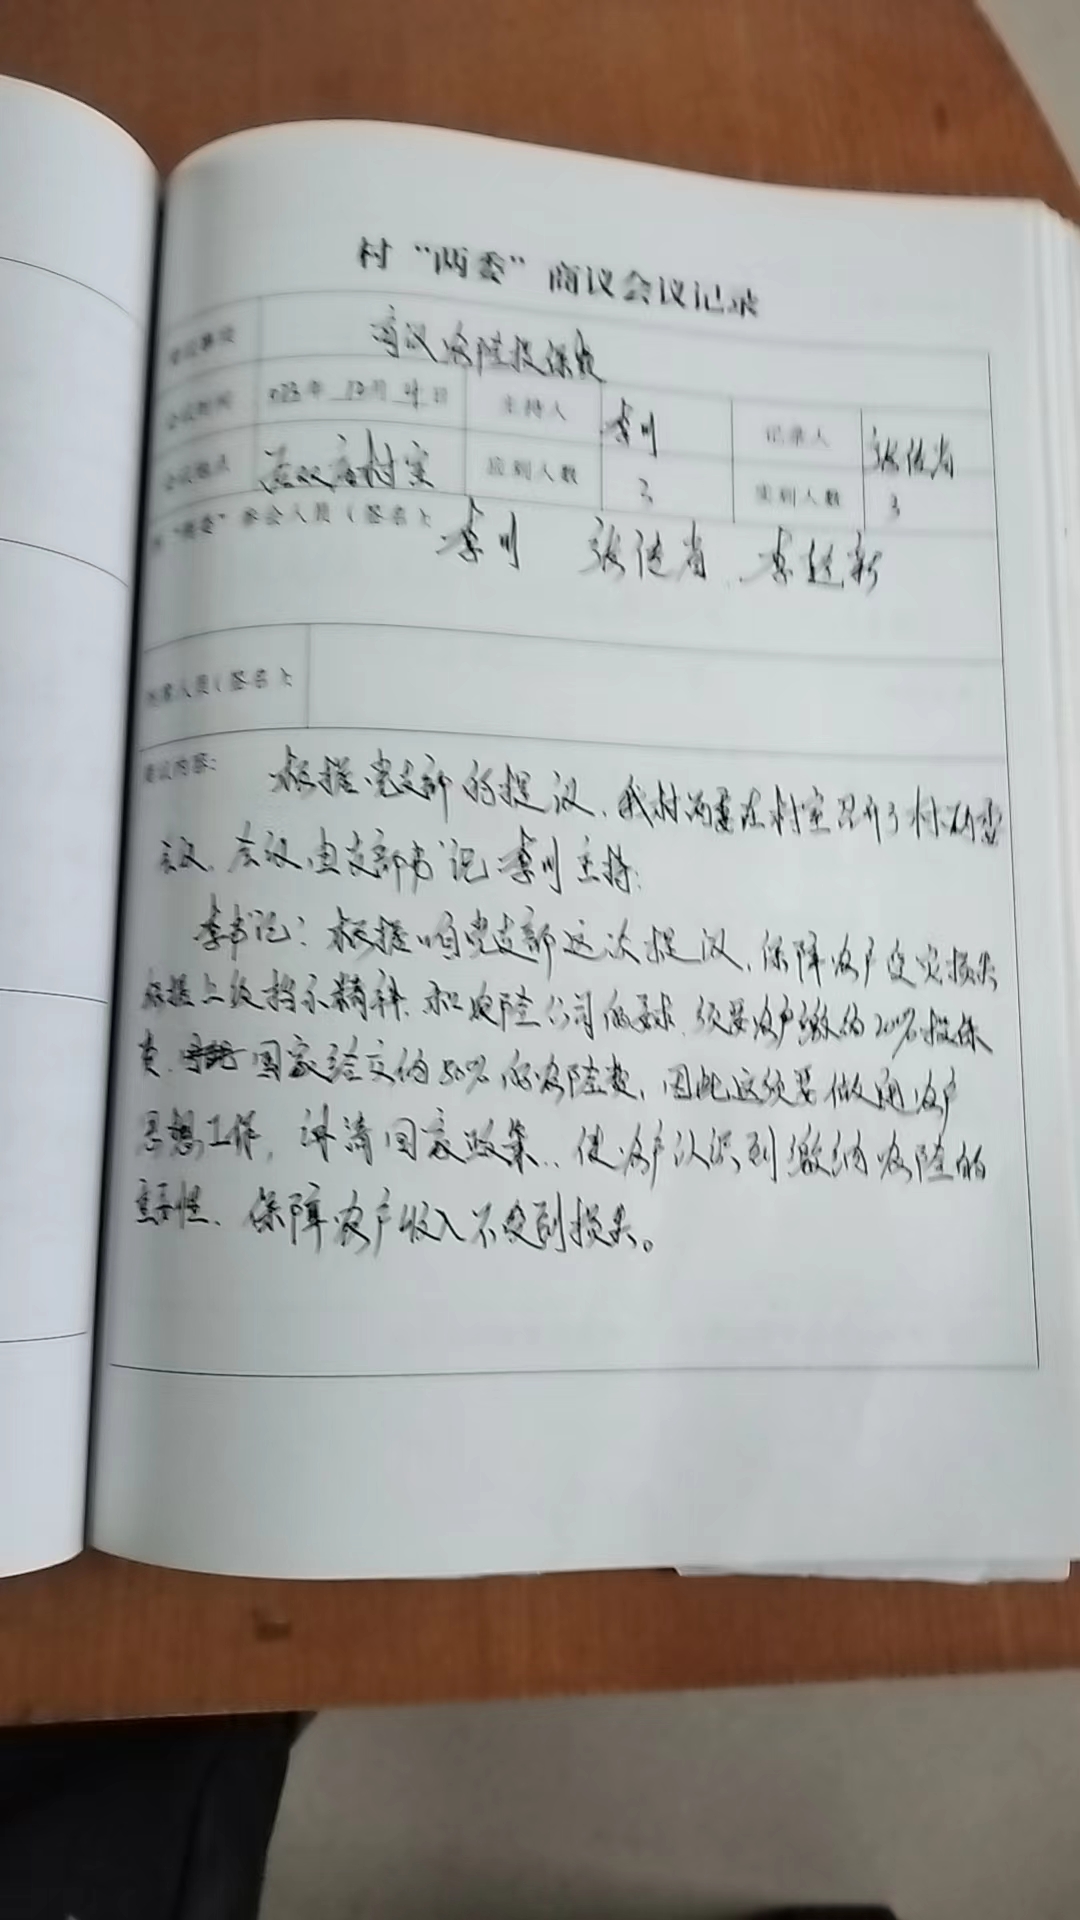 村“两委”商议会议记录
商议事项 商议农险投保费
会议时间 2023年 12月 日 主持人 李川 记录人 张传省
会议地点 村室 应到人数 3 实到人数 3
村“两委”参会人员（签名）： 李川 张传省
列席人员（签名）：
商议内容： 根据党支部的提议，我村两委在村室召开了村两委
会议，会议由支部书记李川主持：
李书记：根据咱党支部这次提议，保障农户受灾损失
根据上级指示精神，和农险公司的要求，须要农户缴纳20%投保
费，国家给交纳80%的农险费，因此这须要做通农户
思想工作，讲清国家政策，使农户认识到缴纳农险的
重要性、保障农户收入不受到损失。